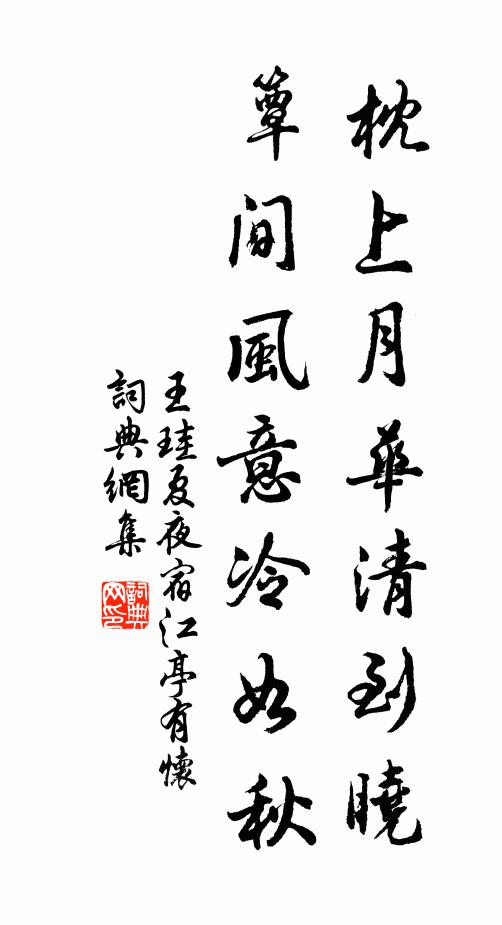 枕上月華清到曉
簟間風意冷如秋
王珪夏夜宿江亭有懷
詞典網集
詞典网印